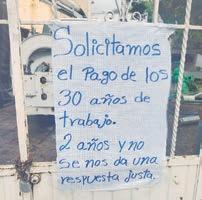 Solicitamos
el Pago de los
30 años de
trabajo.
2 años y no
se nos da una
respuesta justa.